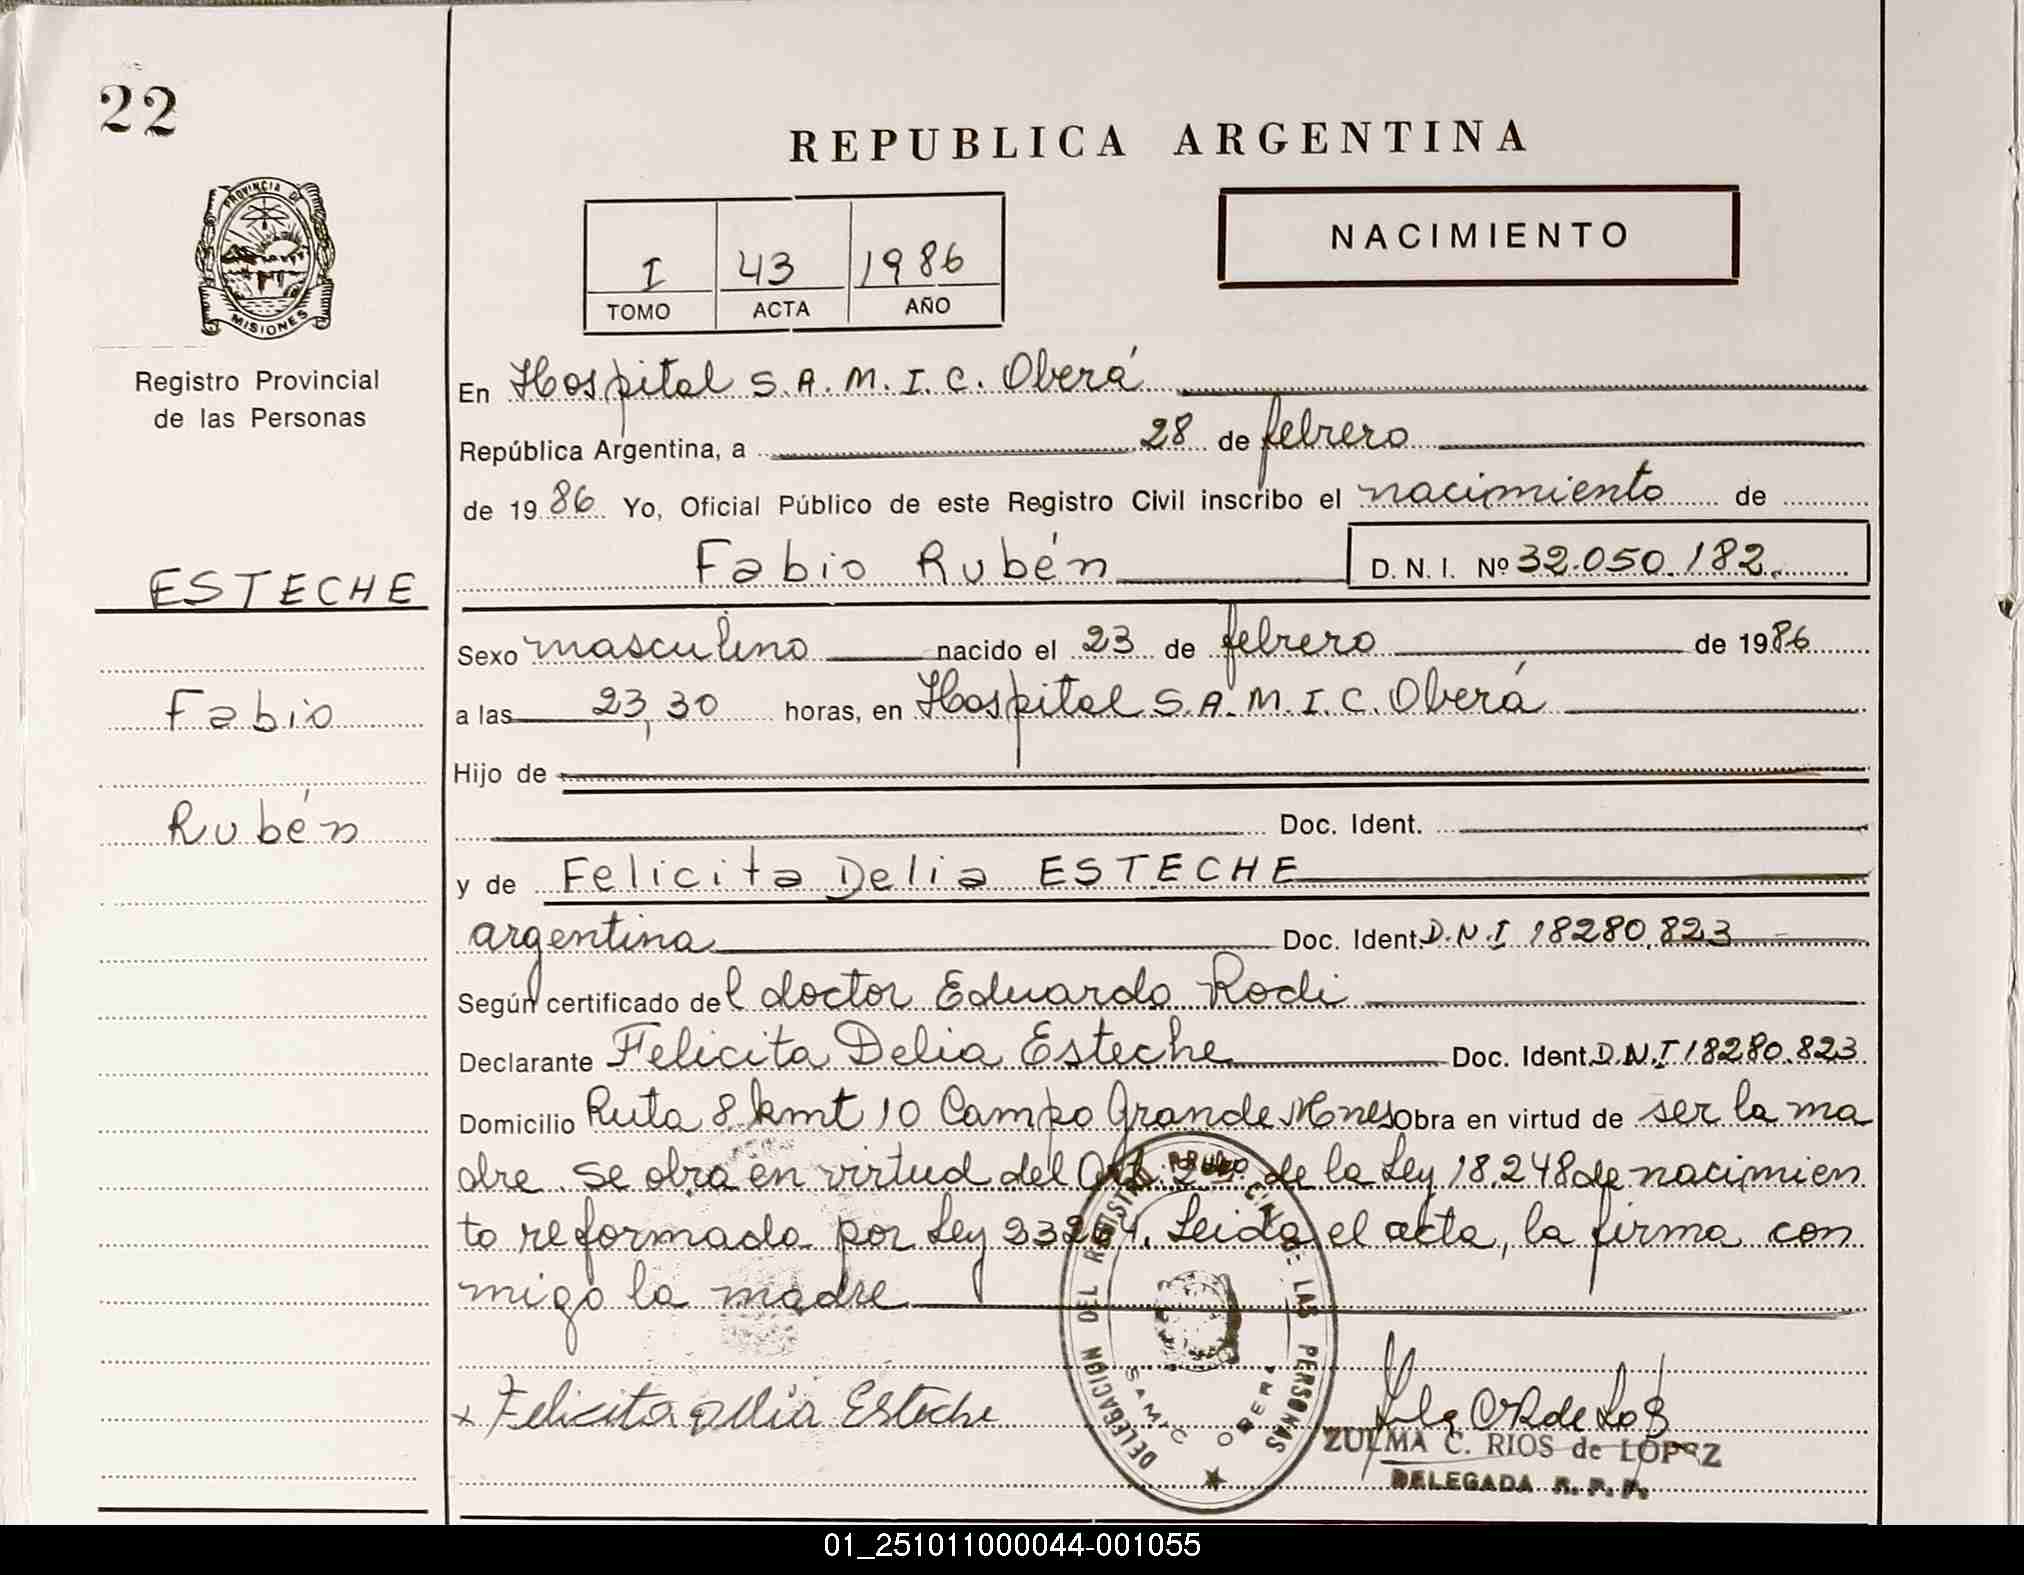 22
REPUBLICA ARGENTINA
PROVINCIA DE
MISIONES
I 43 1986
TOMO ACTA AÑO
NACIMIENTO
Registro Provincial
de las Personas
En Hospital S.A.M.I.C. Oberá
República Argentina, a 28 de febrero
de 1986 Yo, Oficial Público de este Registro Civil inscribo el nacimiento de
Fabio Rubén D.N.I. Nº 32.050.182
ESTECHE
Fabio
Rubén
Sexo masculino nacido el 23 de febrero de 1986
a las 23,30 horas, en Hospital S.A.M.I.C. Oberá
Hijo de
Doc. Ident.
y de Felicita Delia ESTECHE
argentina Doc. Ident. D.N.I 18280.823
Según certificado del doctor Eduardo Rodi
Declarante Felicita Delia Esteche Doc. Ident. D.N.I 18280.823
Domicilio Ruta 8 kmt 10 Campo Grande Mnes Obra en virtud de ser la ma
dre. Se obra en virtud del Art. 2 de la Ley 18.248 de nacimien
to reformado por Ley 23264. Leida el acta, la firma con
migo la madre
x Felicita Delia Esteche
DELEGACION DEL REGISTRO DE LAS PERSONAS
SAMIC OBERA
ZULMA C. RIOS de LOPEZ
DELEGADA R.P.P.
01_251011000044-001055